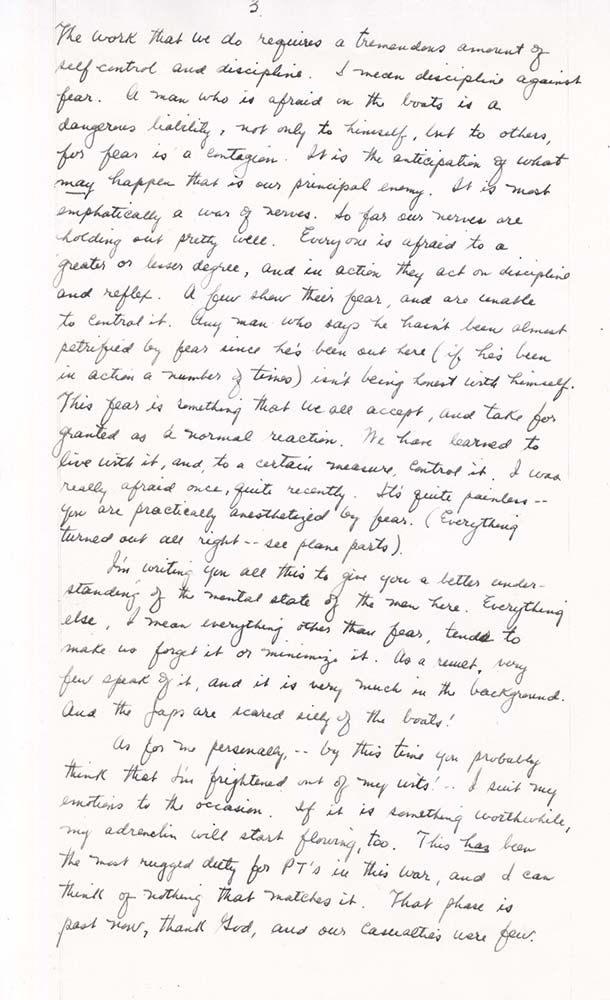 3.
The work that we do requires a tremendous amount of
self control and discipline. I mean discipline against
fear. A man who is afraid in the boats is a
dangerous liability, not only to himself, but to others,
for fear is a contagion. It is the anticipation of what
may happen that is our principal enemy. It is most
emphatically a war of nerves. So far our nerves are
holding out pretty well. Everyone is afraid to a
greater or lesser degree, and in action they act on discipline
and reflex. A few show their fear, and are unable
to control it. Any man who says he hasn't been almost
petrified by fear since he's been out here (if he's been
in action a number of times) isn't being honest with himself.
This fear is something that we all accept, and take for
granted as a normal reaction. We have learned to
live with it, and, to a certain measure, control it. I was
really afraid once, quite recently. It's quite painless--
you are practically anesthetized by fear. (Everything
turned out all right -- see plane parts).
I'm writing you all this to give you a better under-
standing of the mental state of the men here. Everything
else, I mean everything other than fear, tends to
make us forget it or minimize it. As a result, very
few speak of it, and it is very much in the background.
And the Japs are scared silly of the boats!
As for me personally, -- by this time you probably
think that I'm frightened out of my wits! -- I suit my
emotions to the occasion. If it is something worthwhile,
my adrenelin will start flowing, too. This has been
the most rugged duty for PT's in this war, and I can
think of nothing that matches it. That phase is
past now, thank God, and our casualties were few.